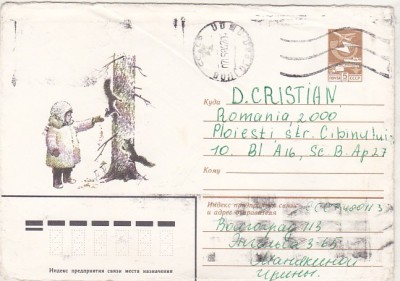 ПОЧТА 5 СССР
Куда
D. CRISTIAN,
Romania, 2000
Ploiesti, str. Cibinului
10. Bl A16, Sc B. Ap 27
Кому
Индекс предприятия связи
и адрес отправителя
СССР 400113
Волгоград 113
3-65
Ирины.
Индекс предприятия связи места назначения